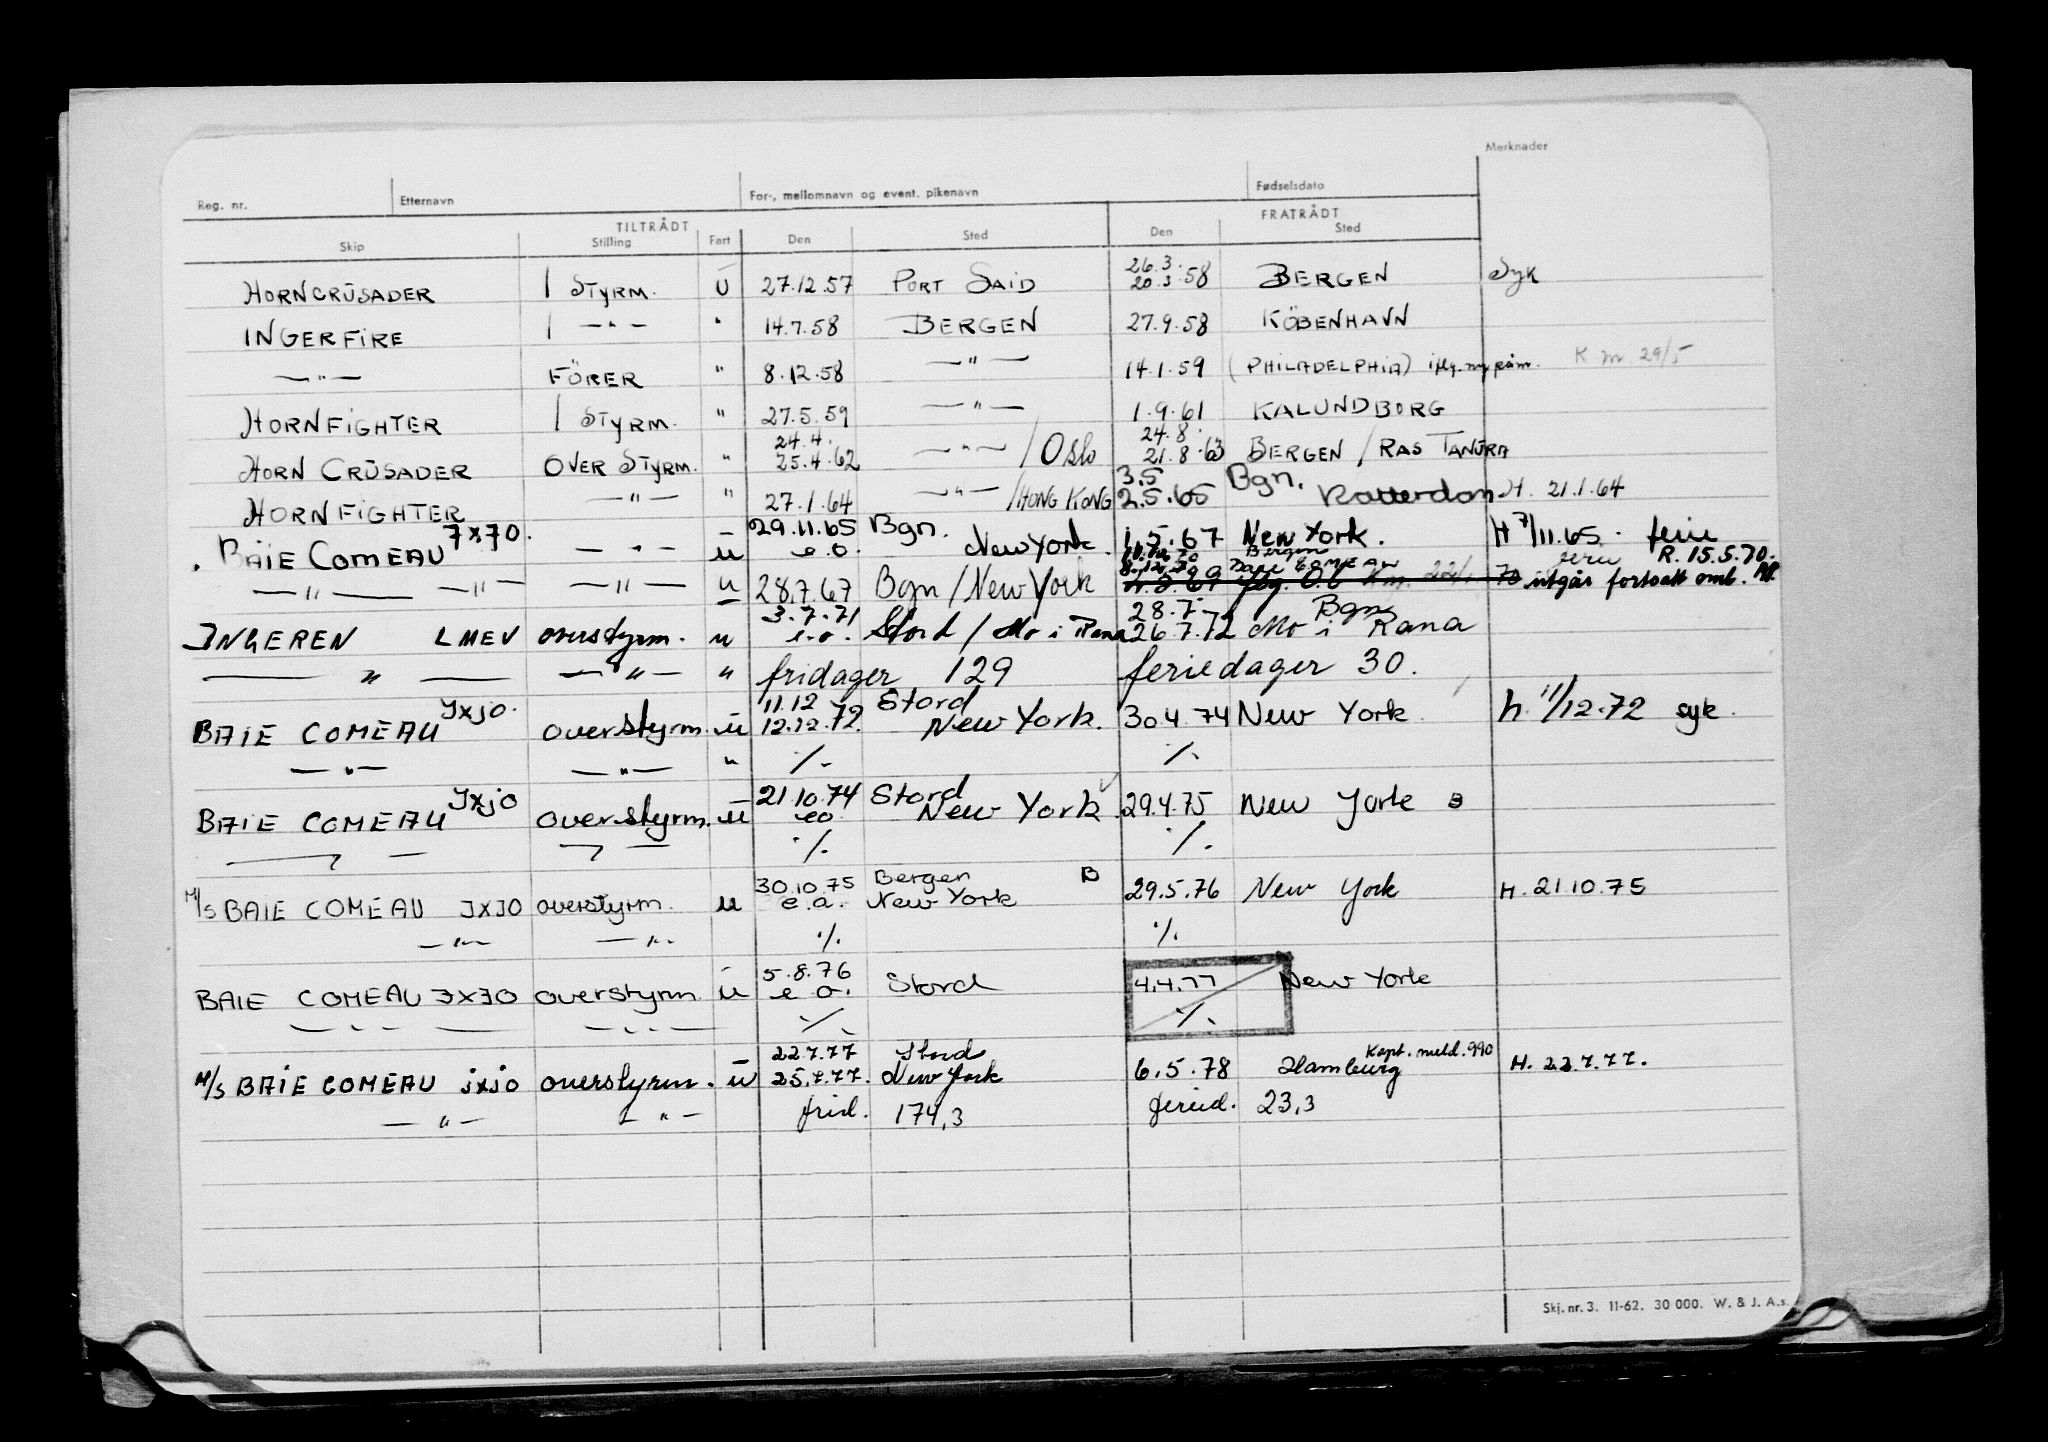 Merknader
Reg. nr. Etternavn For-, mellomnavn og event. pikenavn Fødselsdato
TILTRÅDT FRATRÅDT
Skip Stilling Fart Den Sted Den Sted
26.3.
HORNCRŪSADER 1 STYRM. Ū 27.12.57 PORT SAID 20.3.58 BERGEN Syk
INGERFIRE 1 —"— " 14.7.58 BERGEN 27.9.58 KÖBENHAVN
—"— FÖRER " 8.12.58 —"— 14.1.59 (PHILADELPHIA) K m 29/5
HORNFIGHTER 1 STYRM. " 27.5.59 —"— 1.9.61 KALUNDBORG
24.4. 24.8.
HORN CRŪSADER OVER STYRM. " 25.4.62 —"— / Oslo 21.8.63 BERGEN / RAS TANŪRA
3.5 Bgn.
HORNFIGHTER —"— " 27.1.64 —"— / HONG KONG 2.5.65 Rotterdam H. 21.1.64
7x70. 29.11.65 Bgn.
BAIE COMEAU —"— u e.o. New York. 1.5.67 New York. H 7/11.65. ferie
Bergen ferie R. 15.5.70.
—"— —"— —"— u 28.7.67 Bgn / New York utgår fortsatt omb.
3.7.71 28.7. Bgn
INGEREN LMEV overstyrm. u e.o. Stord / Mo i Rana 26.7.72 Mo i Rana
—"— —"— " fridager 129 feriedager 30.
JXJO. 11.12 Stord
BAIE COMEAU overstyrm. ū 12.12.72. New York. 30.4.74 New York. h. 11/12.72 syk.
—"— —"— " ./. ./.
JXJO 21.10.74 Stord
BAIE COMEAU overstyrm. ū eo New York 29.4.75 New York B
./. ./.
30.10.75 Bergen B
M/S BAIE COMEAU JXJO overstyrm. u e.o. New York 29.5.76 New York H. 21.10.75
—"— —"— ./. ./.
5.8.76
BAIE COMEAU JXJO overstyrm. ū e o. Stord 4.4.77 New York
—"— —"— ./. ./.
22.7.77 Stord Kapt. meld. 990
M/S BAIE COMEAU JXJO overstyrm. ū 25.7.77. New York 6.5.78 Hamburg H. 22.7.77.
—"— —"— frid. 174,3 feried. 23,3
Skj. nr. 3. 11-62. 30 000. W. & J. A.s.